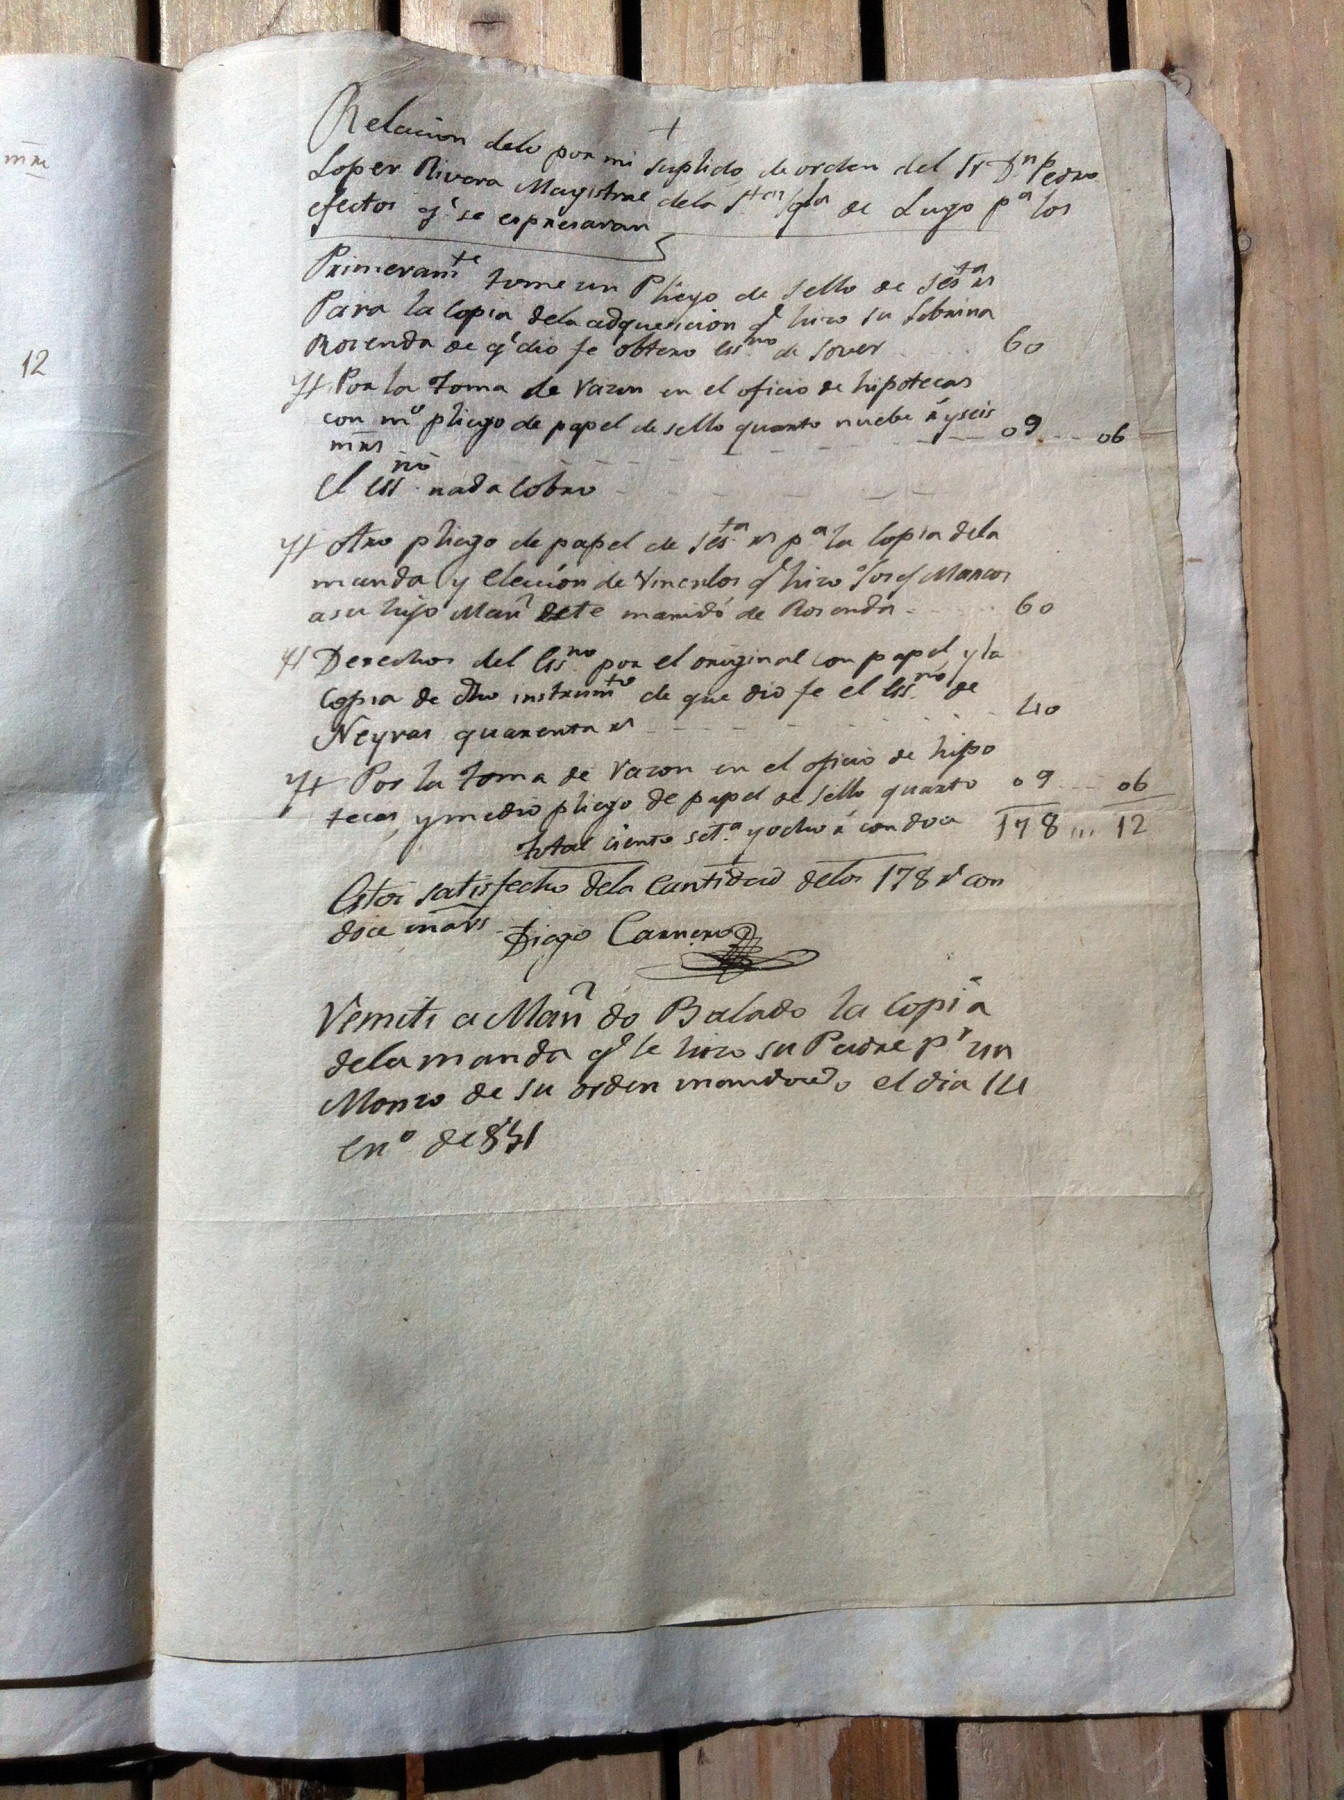 mrs
12
+
Relacion delo por mi suplido de orden del Sr Dn Pedro
Lopez Rivera Magistral dela Sta Iga de Lugo pa los
efectos qe se expresaran
Primeramte tome un Pliego de sello de sesta rs
Para la copia dela adquisicion qe hizo su Sobrina
Rosenda de qe dio fe obtero essno de Sover 60
Yt Por la toma de razon en el oficio de hipotecas
con mo pliego de papel de sello quarto nuebe rs y seis
mrs 09 06
el essno nada cobro
Yt otro pliego de papel de sesta rs pa la copia dela
manda y elección de vinculos qe hizo Josef Marcos
a su hijo Manl este maridó de Rosenda 60
Yt Derechos del Essno por el original con papel y la
copia de dho instrumto de que dio fe el Essno de
Neyras quarenta rs 40
Yt Por la toma de razon en el oficio de hipo
tecas, y medio pliego de papel de sello quarto 09 06
total ciento seta y ocho rs con doce 178 12
Estoi satisfecho dela cantidad delos 178 rs con
doce mavs Diego Carnero
Remiti a Manl do Balado la copia
dela manda qe le hizo su Padre pr un
Monzo de su orden mandado el dia 14
eno de 831